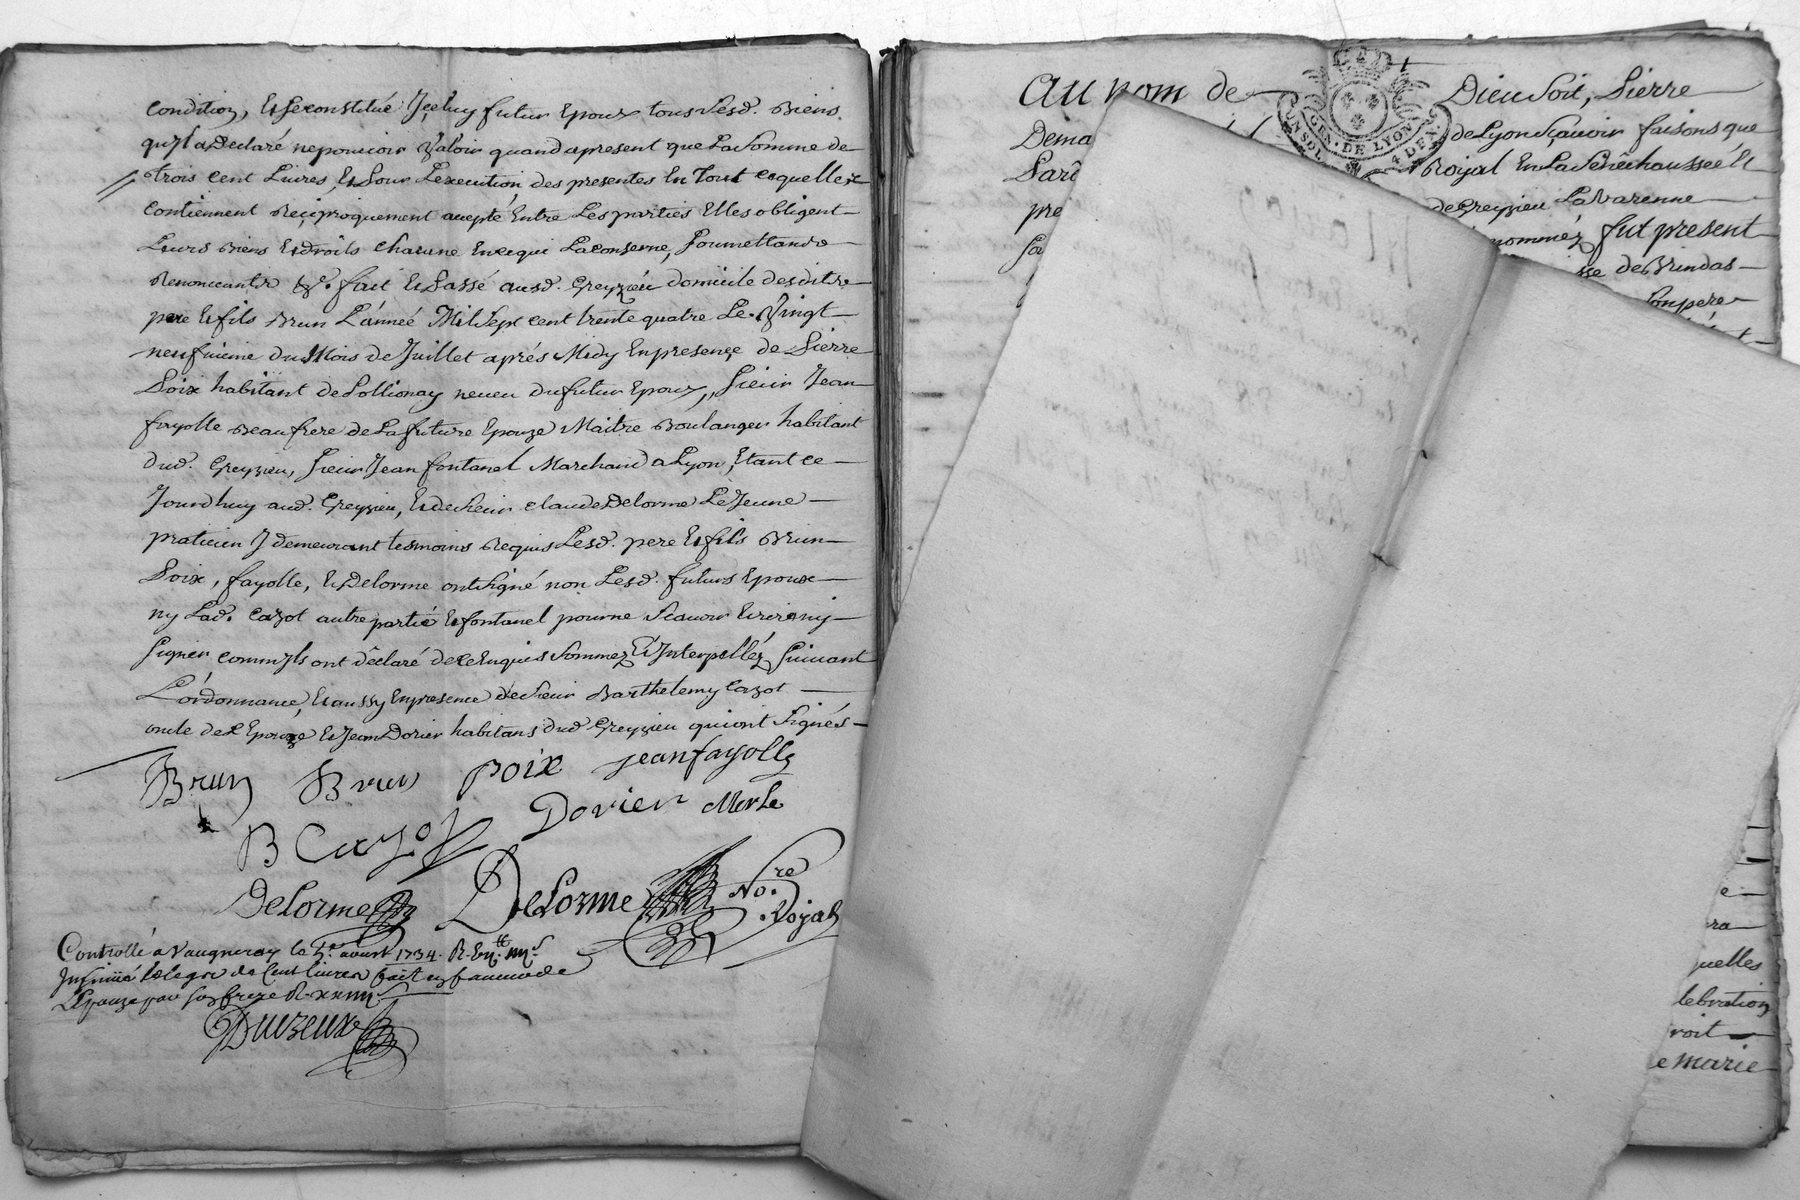 condition, Et se constitué Iceluy futur Epoux tous Sesd. Biens
qu'il a Declaré ne pouvoir Valoir quand apresent que La Somme de
trois cent Livres, Et Pour L'execution des presentes En Tout ce quelles
contiennent Reciproquement accepté Entre Les parties Elles obligent
Leurs Biens Et droits chacune En ce qui La conserne, Soumettants
Renonceants &a. fait Et Passé ausd. Greyzieu domicile desdits
pere Et fils Brun L'année Mil Sept cent trente quatre Le Vingt
neufvieme du Mois de Juillet aprés Midy En presençe de Pierre
Poix habitant de Pollionay neveu du futur Epoux, Sieur Jean
fayolle Beaufrere de La future Epouze Maitre Boulanger habitant
dud. Greyzieu, Sieur Jean fontanel Marchand a Lyon, Etant ce
Jourdhuy aud. Greyzieu, Et de Sieur claude Delorme Le Jeune
praticien J demeurant tesmoins Requis Lesd. pere Et fils Brun
Poix, fayolle, Et Delorme ont Signé non Lesd. futurs Epoux
ny Lad. Cazot autre partie Et fontanel pour ne Scavoir Ecrire ny
Signer comm'ils ont déclaré de ce Enquis Sommez Et Interpelléz Suivant
L'ordonnance, Et aussy En presence de Sieur Barthelemy Cazot
oncle de L'Epouze Et Jean Dorier habitans dud. Greyzieu qui ont Signés
Brun Brun poix jean fayolle
B Cazot Dorier Merle
Delorme Delorme No.re Royal
Controllé a Vaugneray le aoust 1734.
Insinué le legs de Cent livres fait en faveur de
L'Epouze par son frere
Duzeux
Au nom de Dieu Soit, Pierre
Dema de Lyon Sçavoir faisons, que
GEN. DE LYON
Pard Royal En La Sénéchaussée Et
pre de Greyzieu La Varenne
nommez fut present
sse de Brindas
Son pere
e
ra
quelles
lebration
roit
e marie